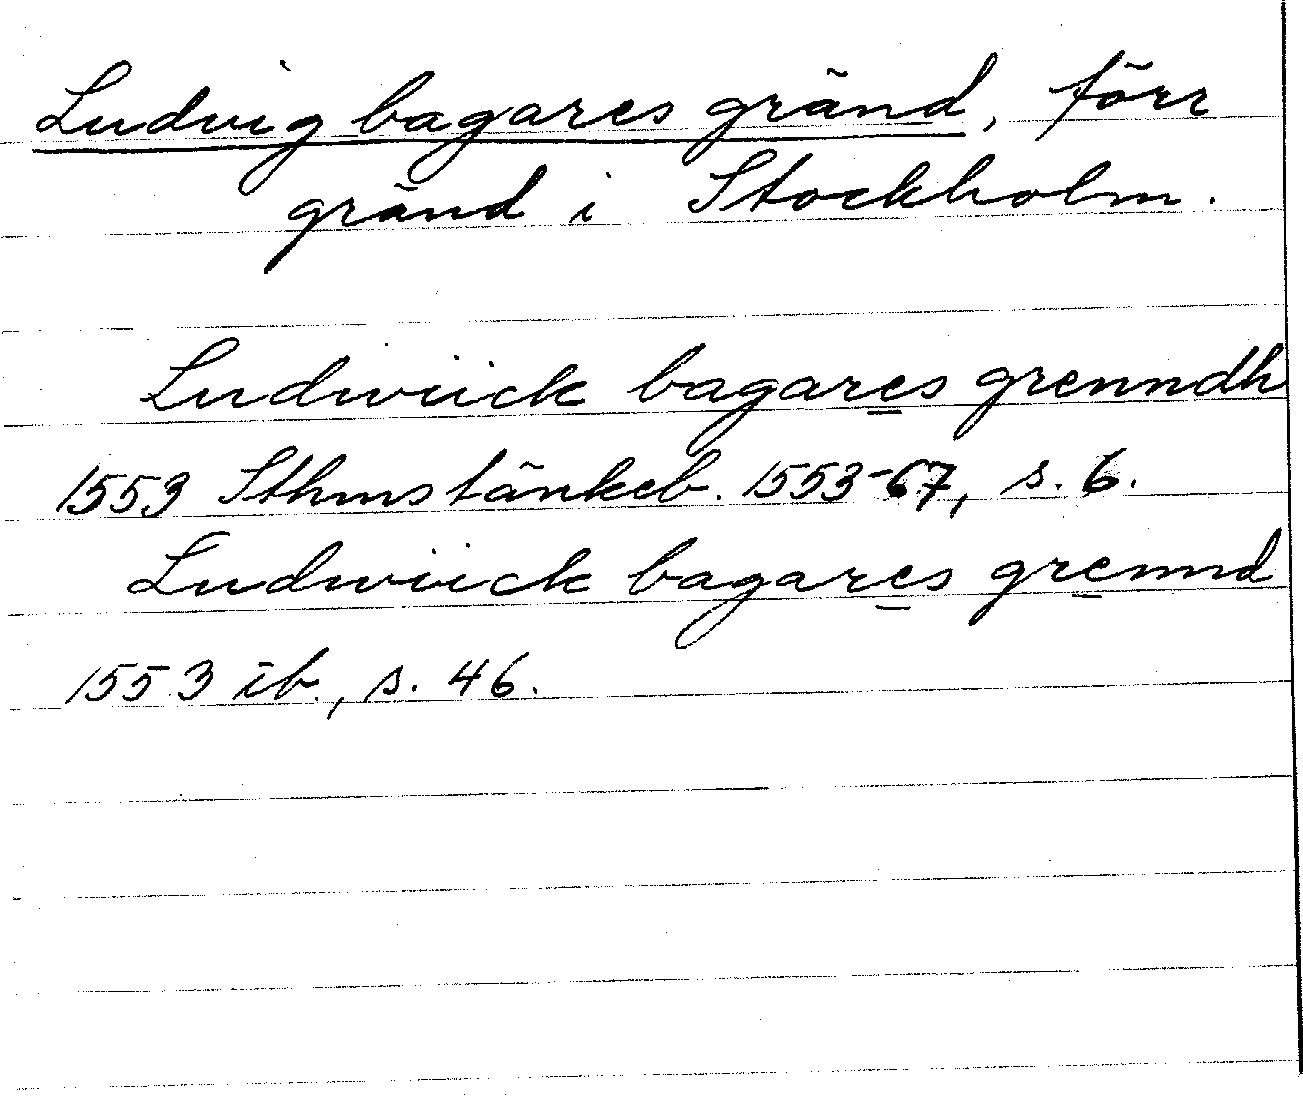 Ludvig bagares gränd, förr
gränd i Stockholm.
Ludwiick bagares grenndh
1553 Sthms tänkeb. 1553-67, s. 6.
Ludwiick bagares grennd
1553 ib., s. 46.